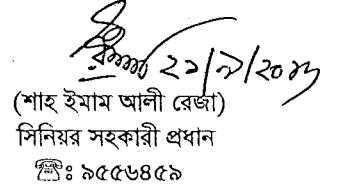 ২১/৯/২০১৬
(শাহ ইমাম আলী রেজা)
সিনিয়র সহকারী প্রধান
☎ঃ ৯৫৫৬৪৫৯